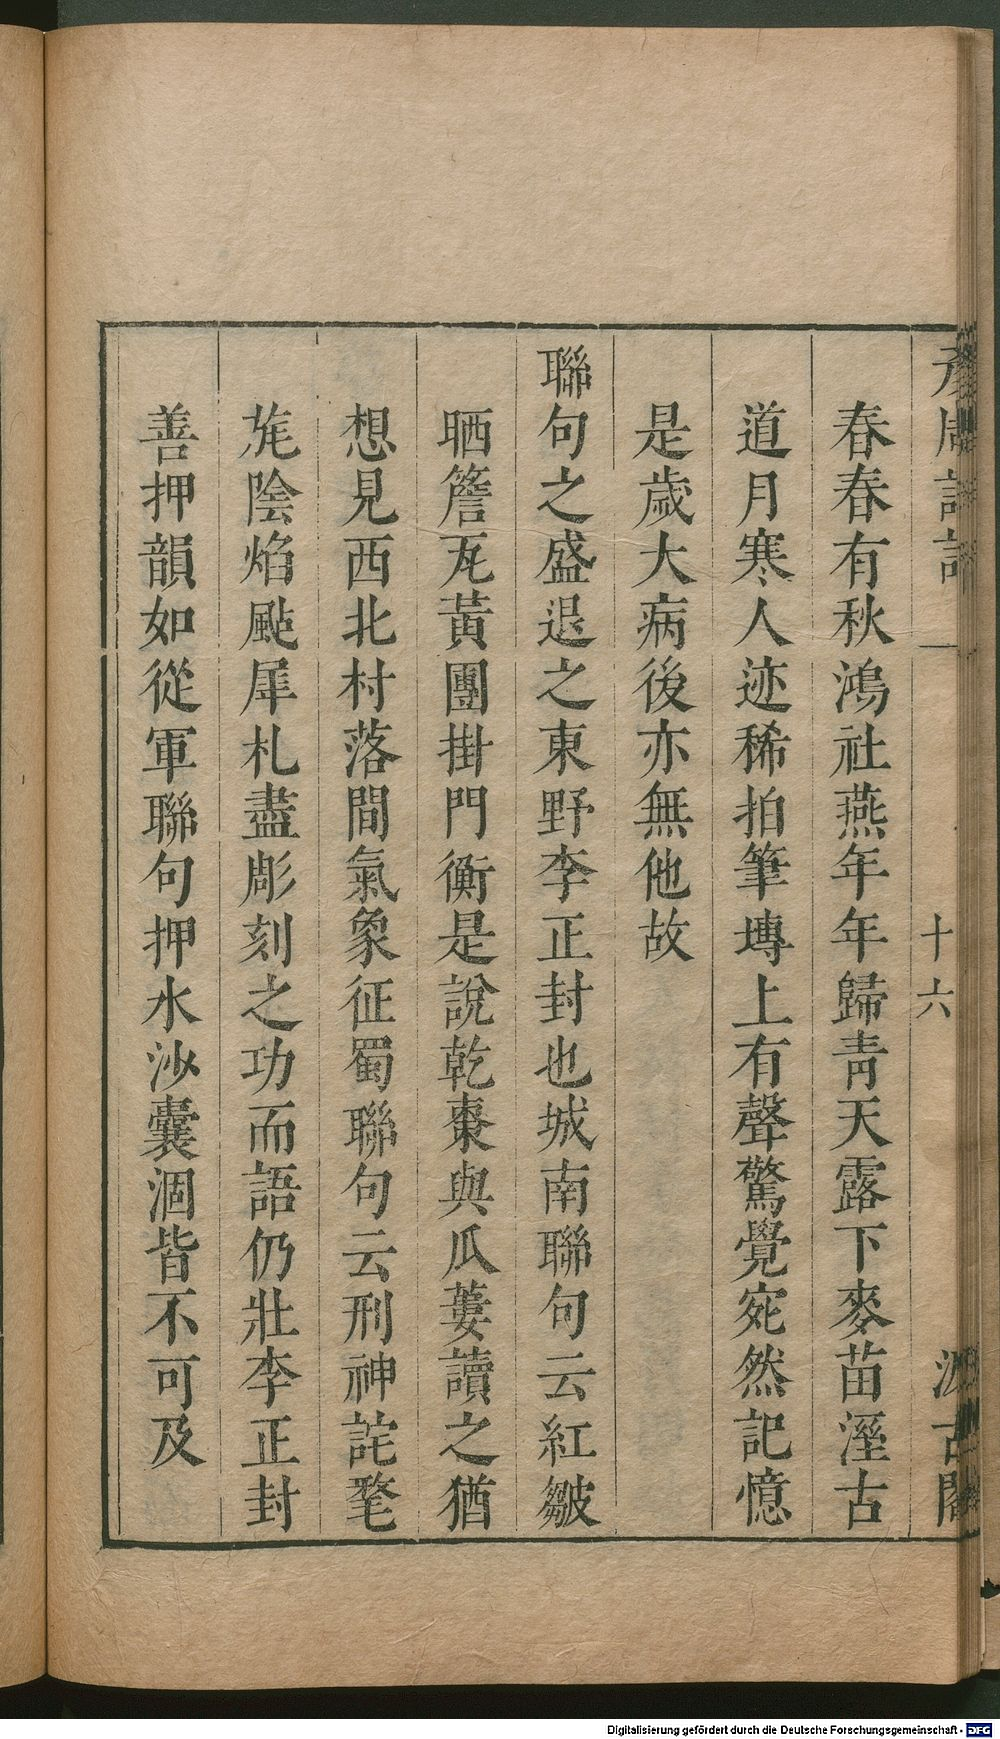 彥周詩話
十六
汲古閣
春春有秋鴻社燕年年歸青天露下麥苗溼古
道月寒人迹稀拍筆塼上有聲驚覺宛然記憶
是歲大病後亦無他故
聯句之盛退之東野李正封也城南聯句云紅皺
晒簷瓦黃團掛門衡是說乾棗與瓜蔞讀之猶
想見西北村落間氣象征蜀聯句云刑神詫氂
旄陰焰颭犀札盡彫刻之功而語仍壯李正封
善押韻如從軍聯句押水沙囊涸皆不可及
Digitalisierung gefördert durch die Deutsche Forschungsgemeinschaft - DFG